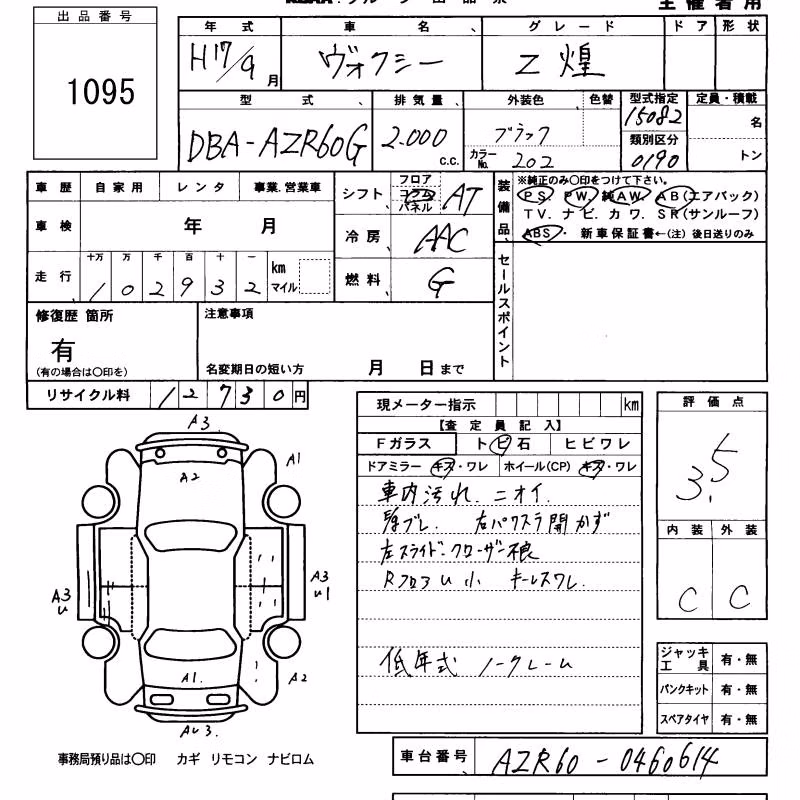 主催者用
出品番号
1095
年式 車名 グレード ドア 形状
H17/9月 ヴォクシー Z煌
型式 排気量 外装色 色替 型式指定 定員・積載
DBA-AZR60G 2.000 c.c. ブラック 15082 名
カラーNo. 202 類別区分 0190 トン
車歴 自家用 レンタ 事業.営業車
車検 年 月
走行 十万 万 千 百 十 一 km マイル
102932
シフト フロア コラム パネル AT
冷房 AAC
燃料 G
装備品 ※純正のみ○印をつけて下さい。
PS. PW. 純AW. AB(エアバック)
TV. ナビ. カワ. SR(サンルーフ)
ABS・ 新車保証書←(注)後日送りのみ
セールスポイント
修復歴 箇所
有
(有の場合は○印を)
注意事項
名変期日の短い方 月 日まで
リサイクル料 12730円
現メーター指示 km
【査定員記入】
Fガラス トビ石 ヒビワレ
ドアミラー キズ・ワレ ホイール(CP) キズ・ワレ
車内汚れ. ニオイ.
右パワスラ開かず
左スライド・クローザー不良
RフロアU小 キーレスワレ.
低年式 ノークレーム
評価点
3.5
内装 外装
C C
A3
A1
A2
A3
U
A3
U1
A1.
A2
AU3.
ジャッキ工具 有・無
パンクキット 有・無
スペアタイヤ 有・無
事務局預り品は○印 カギ リモコン ナビロム
車台番号 AZR60-0460614